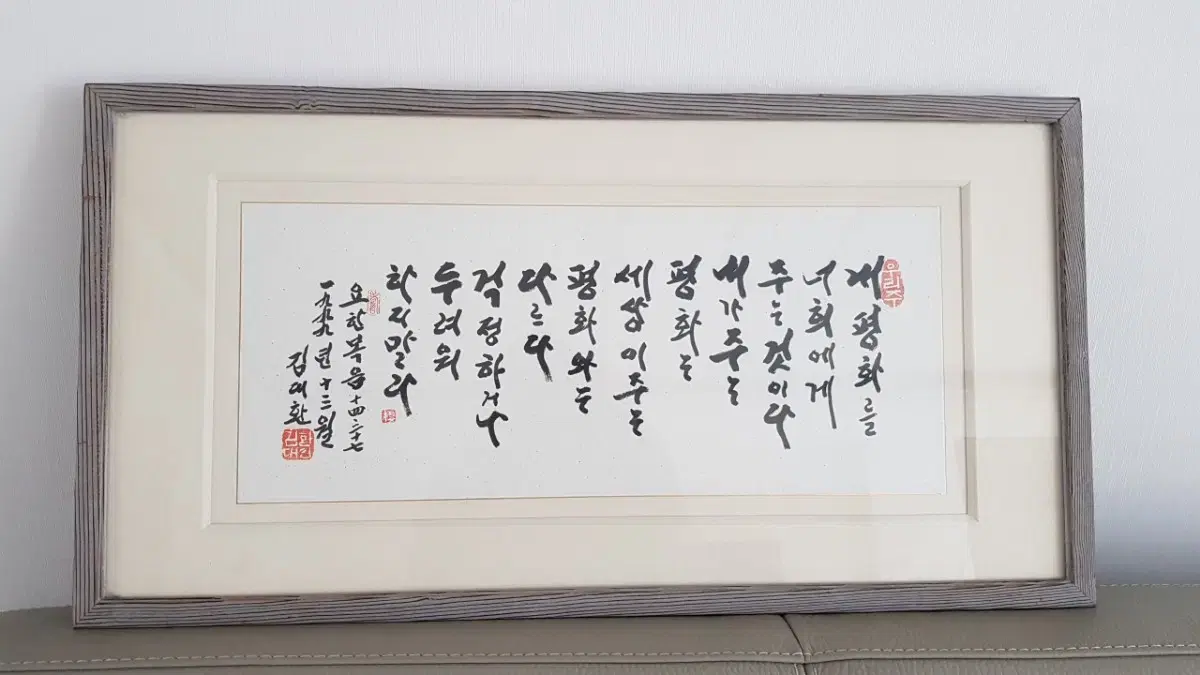 우리주
내 평화를
너희에게
주는 것이다
내가 주는
평화는
세상이 주는
평화와는
다르다
걱정하거나
두려워
하지말라
요한복음 十四 二十七
一九九九년 十二월
김대환